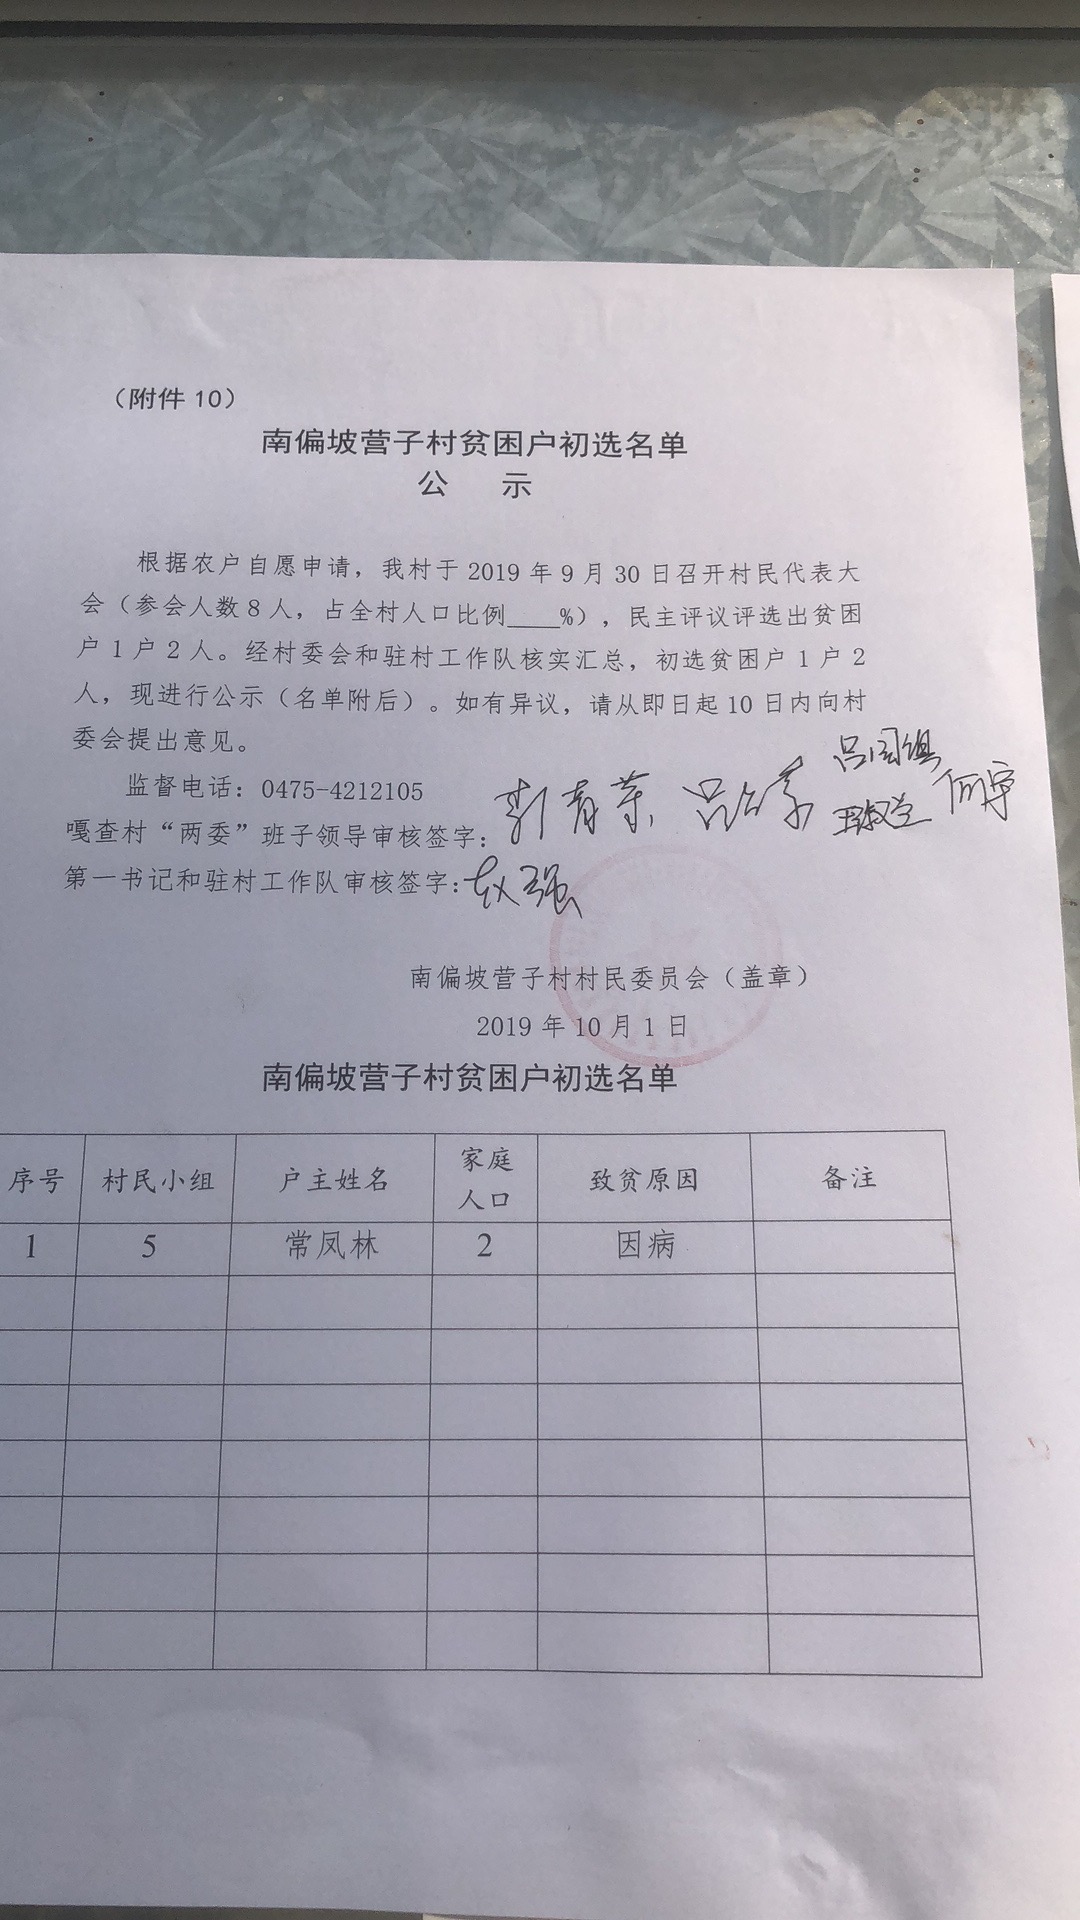 （附件 10）
南偏坡营子村贫困户初选名单
公 示
根据农户自愿申请，我村于 2019 年 9 月 30 日召开村民代表大
会（参会人数 8 人，占全村人口比例____%），民主评议评选出贫困
户 1 户 2 人。经村委会和驻村工作队核实汇总，初选贫困户 1 户 2
人，现进行公示（名单附后）。如有异议，请从即日起 10 日内向村
委会提出意见。
监督电话：0475-4212105
嘎查村“两委”班子领导审核签字：
第一书记和驻村工作队审核签字：赵强
南偏坡营子村村民委员会（盖章）
2019 年 10 月 1 日
南偏坡营子村贫困户初选名单
序号 村民小组 户主姓名 家庭人口 致贫原因 备注
1 5 常凤林 2 因病